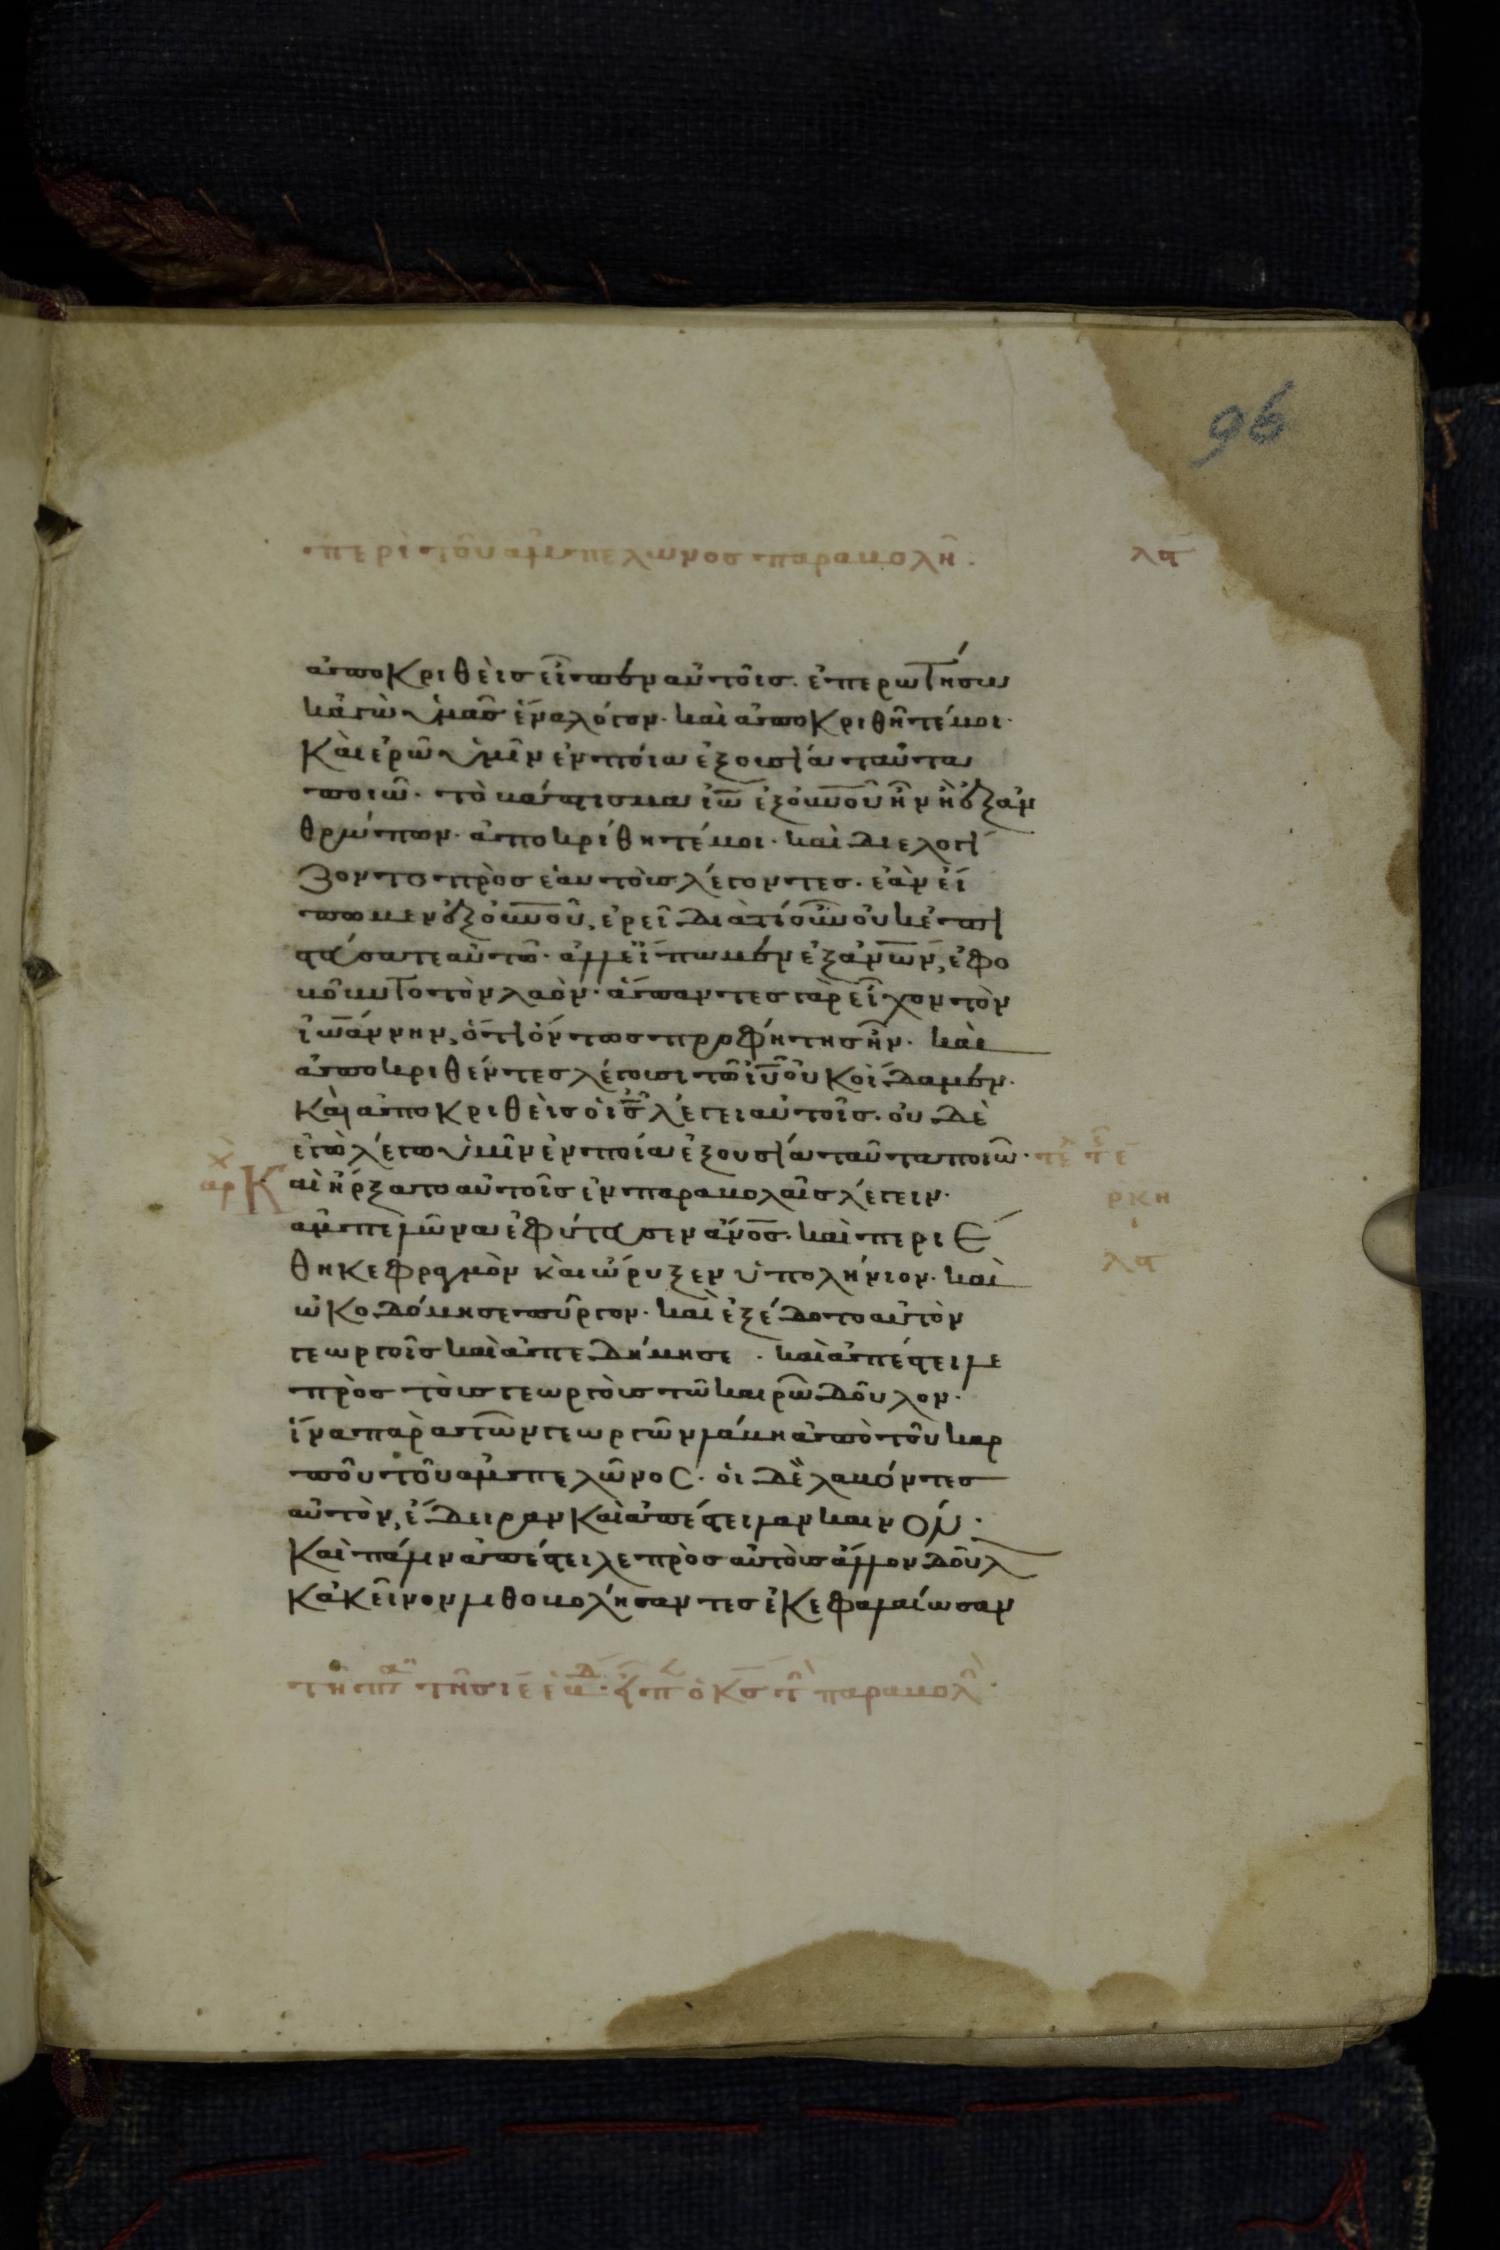 96
περὶ τοῦ ἀμπελῶνος παραβολῆ. λα
ἀποκριθεὶς εἶπεν αὐτοῖς. ἐπερωτήσω
κἀγὼ ὑμᾶς ἕνα λόγον. καὶ ἀποκριθῆτέ μοι.
καὶ ἐρῶ ὑμῖν ἐν ποία ἐξουσία ταῦτα
ποιῶ. τὸ βάπτισμα ἰω̅ ἐξ οὐνοῦ ἦν ἢ ἐξ ἀν
θρώπων. ἀποκρίθητέ μοι. καὶ διελογί
ζοντο πρὸς ἑαυτοὺς λέγοντες. ἐὰν εἴ
πωμεν ἐξ οὐνοῦ, ἐρεῖ διατί οὖν οὐκ ἐπι
στεύσατε αὐτῶ. ἀλλ εἴπωμεν ἐξ ἀνων, ἐφο
βοῦντο τὸν λαὸν. ἅπαντες γὰρ εἶχον τὸν
ἰωάννην, ὅτι ὄντως προφήτης ἦν. καὶ
ἀποκριθέντες λέγουσι τῶ ἰυ οὐκ οἴδαμεν.
καὶ ἀποκριθεὶς ὁ ις λέγει αὐτοῖς. οὐδὲ
ἐγὼ λέγω ὑμῖν ἐν ποία ἐξουσία ταῦτα ποιῶ.
ἀρχ Καὶ ἤρξατο αὐτοῖς ἐν παραβολαῖς λέγειν. ρκη
ἀμπελῶνα ἐφύτευσεν ἄνος. καὶ περιέ
θηκε φραγμὸν καὶ ὤρυξεν ὑπολήνιον. καὶ λα
ὠκοδόμησε πύργον. καὶ ἐξέδοτο αὐτὸν
γεωργοῖς καὶ ἀπεδήμησε. καὶ ἀπέστειλε
πρὸς τοὺς γεωργοὺς τῶ καιρῶ δοῦλον.
ἵνα παρὰ τῶν γεωργῶν λάβη ἀπὸ τοῦ καρ
ποῦ τοῦ ἀμπελῶνος. οἱ δὲ λαβόντες
αὐτὸν, ἔδειραν καὶ ἀπέστειλαν κενόν.
καὶ πάλιν ἀπέστειλε πρὸς αὐτοὺς ἄλλον δοῦλ
κἀκεῖνον λιθοβολήσαντες ἐκεφαλαίωσαν